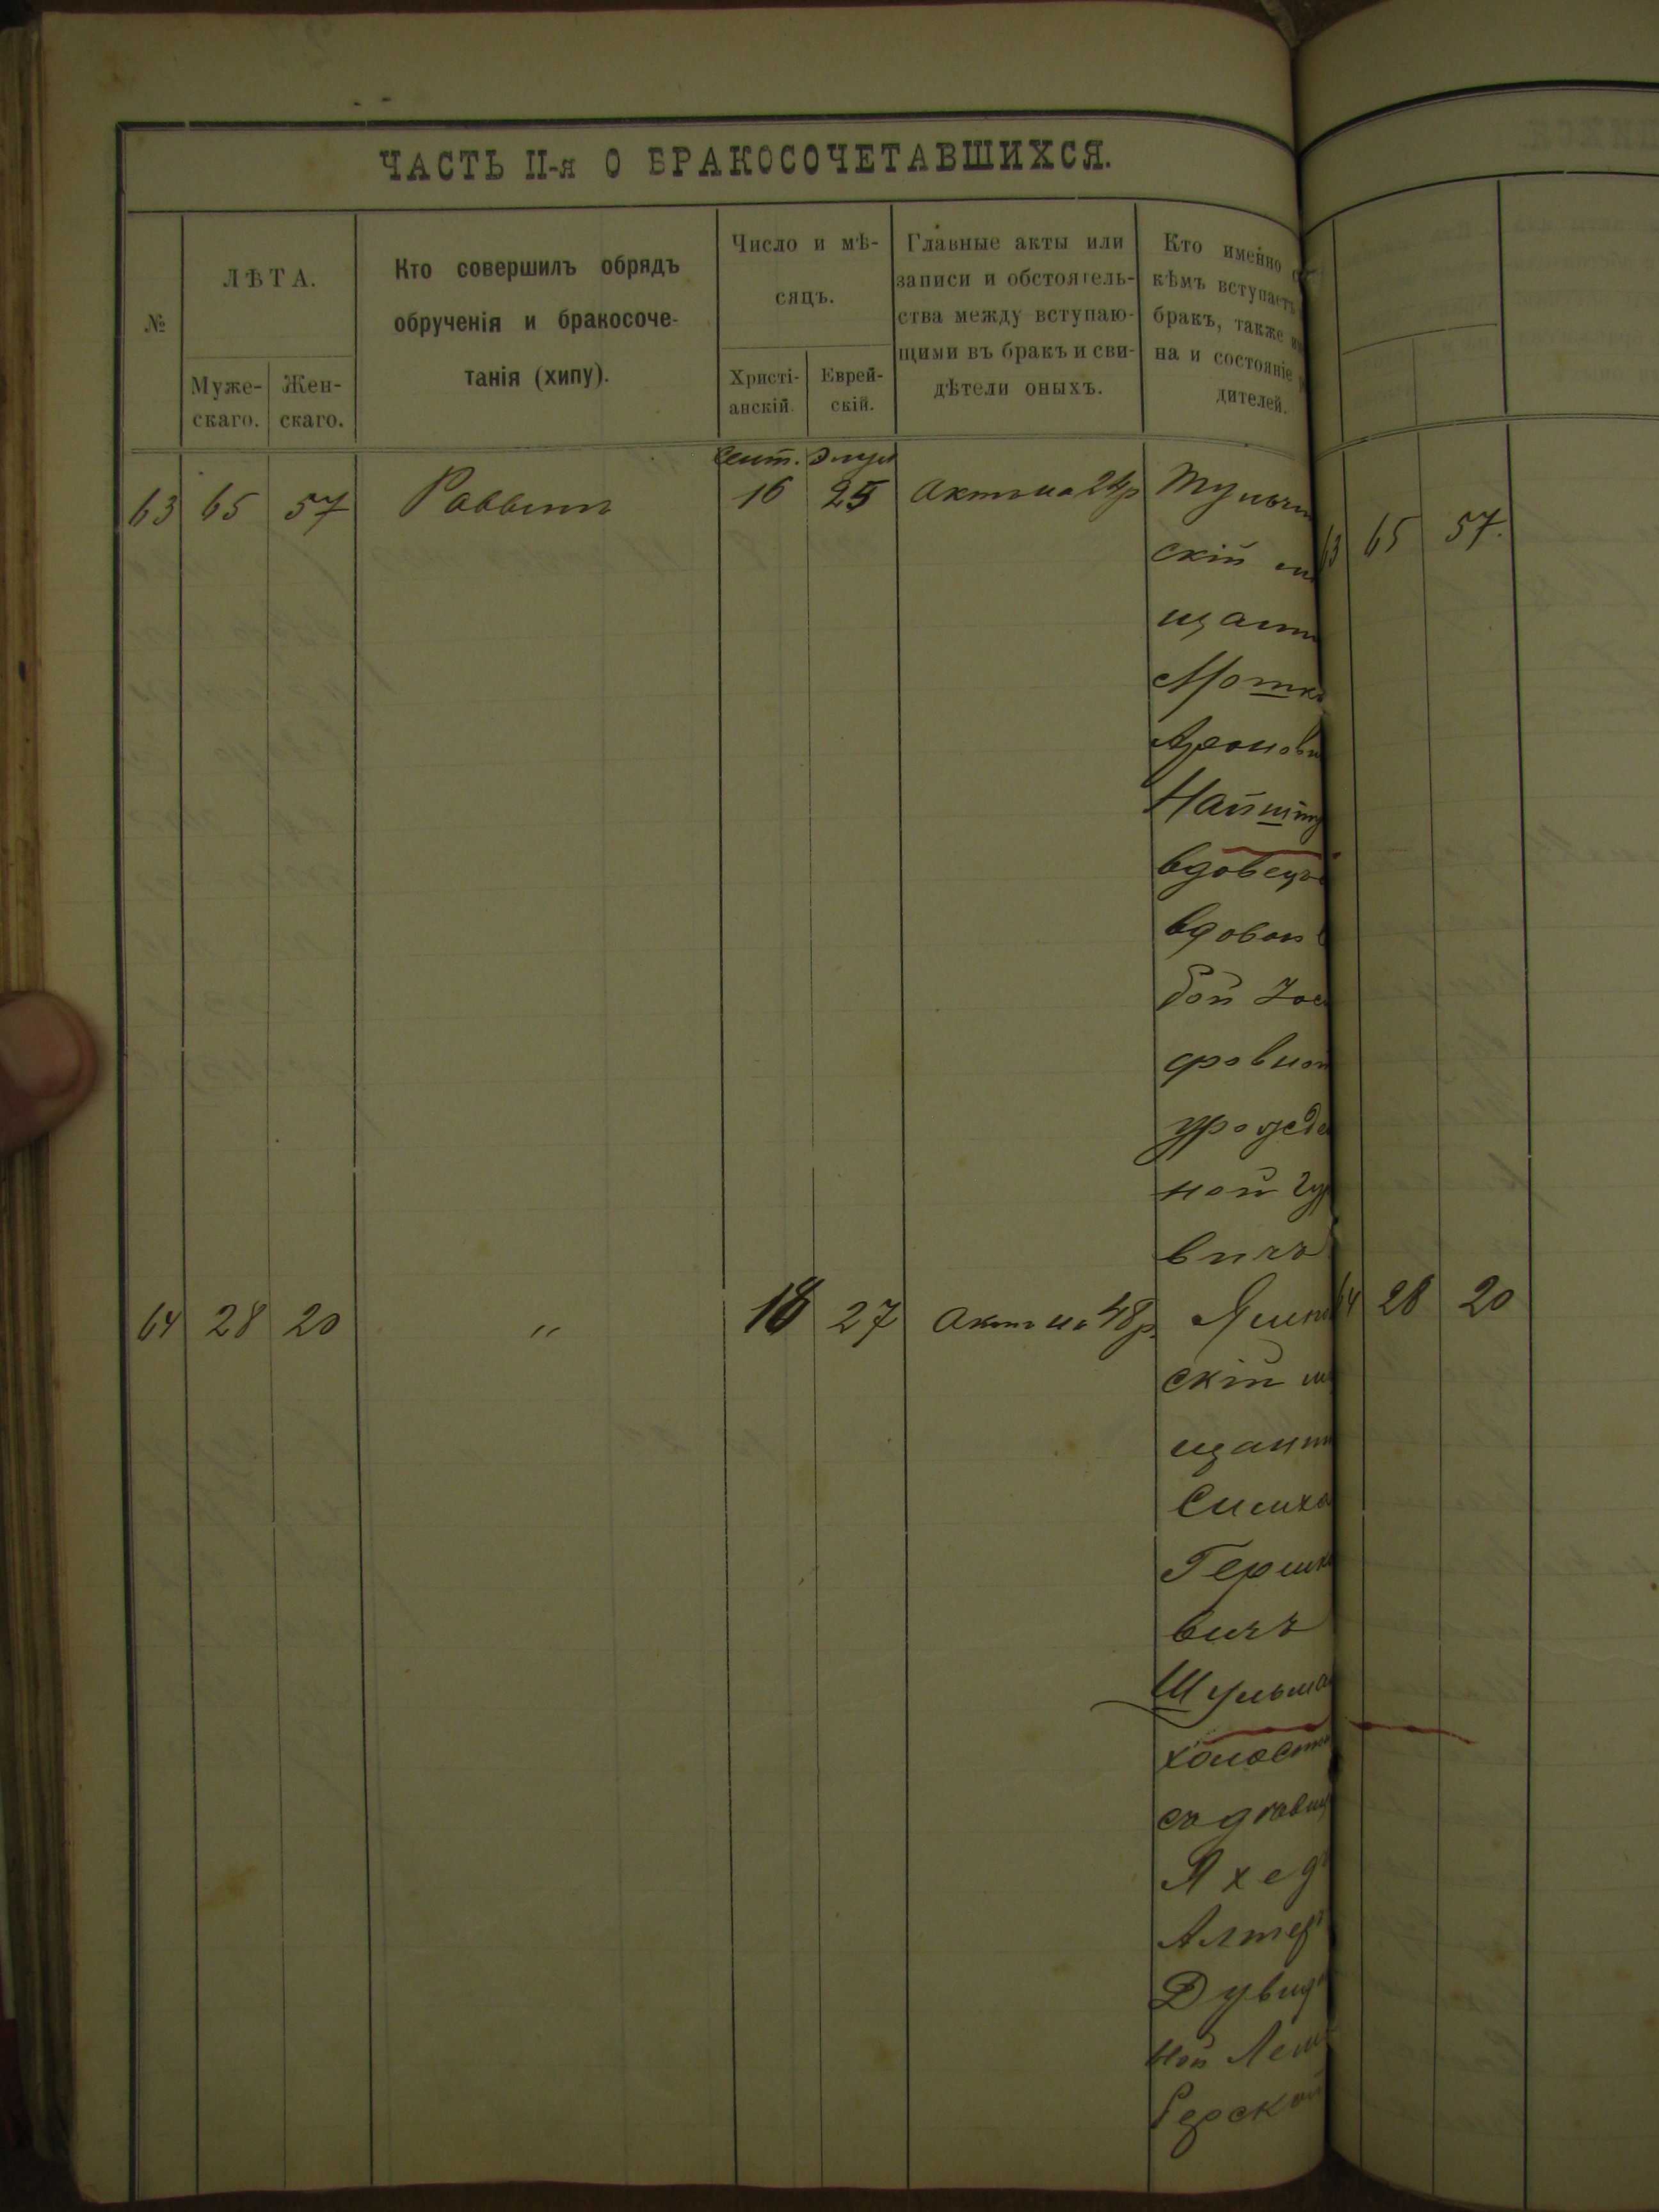 ЧАСТЬ II-я О БРАКОСОЧЕТАВШИХСЯ.
№
ЛѢТА.
Муже-
скаго.
Жен-
скаго.
Кто совершилъ обрядъ
обрученія и бракосоче-
танія (хипу).
Число и мѣ-
сяцъ.
Христі-
анскій.
Еврей-
скій.
Главные акты или
записи и обстоятель-
ства между вступаю-
щими въ бракъ и сви-
дѣтели оныхъ.
Кто именно
кѣмъ вступаетъ
бракъ, также
на и состояніе
дителей.
Сент. Элул
63 65 57 Раввинъ 16 25 Актъ на 24 р
скій
щани
Мошк
Ароно
Найшт
вдовецъ
вдовой
бой
фовной
урожде
ной Гур
вичъ
64 28 20 " 18 27 Актъ на 48 р.
скій
щани
Симха
Гершк
вичъ
Шульма
холост
съ дѣвиц
Яхед
Алтер
Дувид
ной
63 65 57.
64 28 20